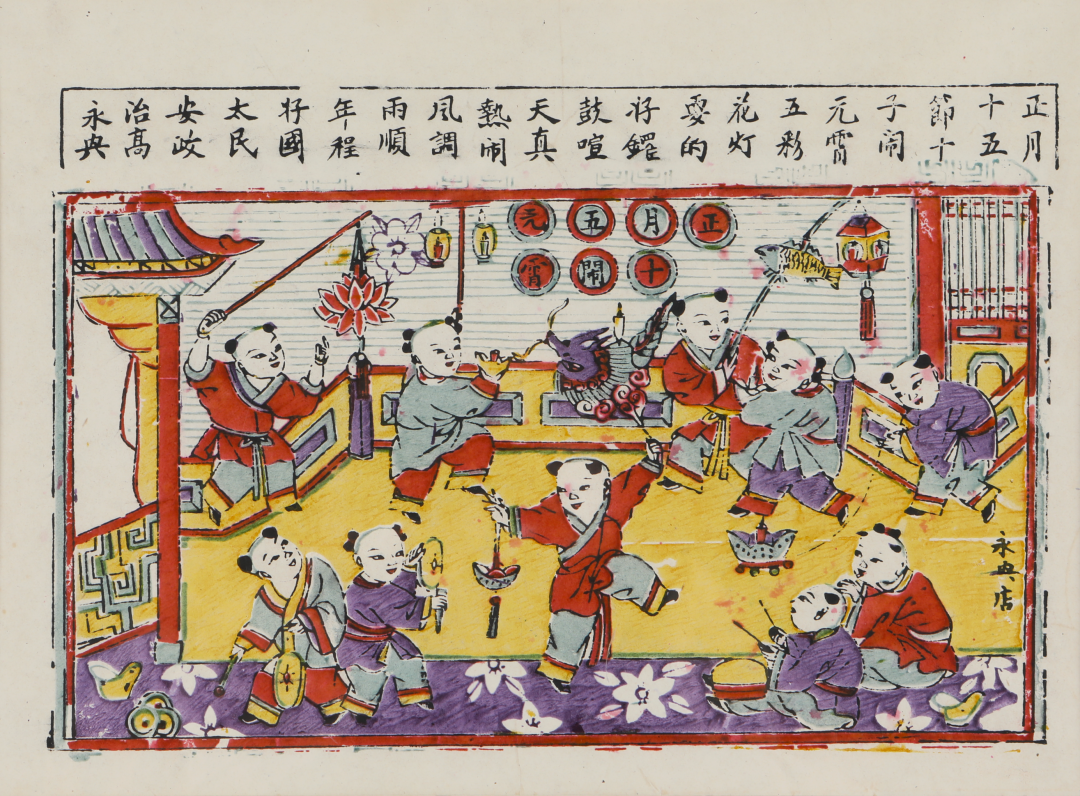 正月
十五
節十
子闹
元宵
五彩
花灯
耍的
好鑼
鼓喧
天真
熱闹
風調
雨順
年程
好國
太民
安政
治高
永典
正
月十
五閙
元宵
永典店